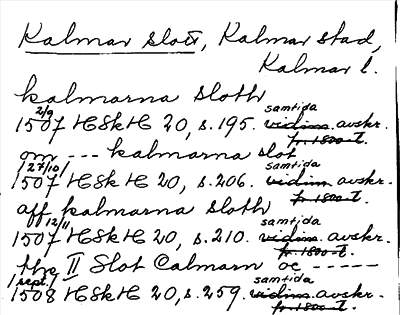 Kalmar slott, Kalmar stad,
Kalmar l.
kalmarna sloth
1507 2/9 HSkH 20, s.195. samtida vidim. avskr. fr. 1800-t.
om --- kalmarna slot
1507 27/10 HSkH 20, s.206. samtida vidim. avskr. fr. 1800-t.
aff kalmarna sloth
1507 12/11 HSkH 20, s.210. samtida vidim. avskr. fr. 1800-t.
the II Slot Calmarn oc -----
1508 1 sept. HSkH 20, s.259. samtida vidim. avskr. fr. 1800-t.